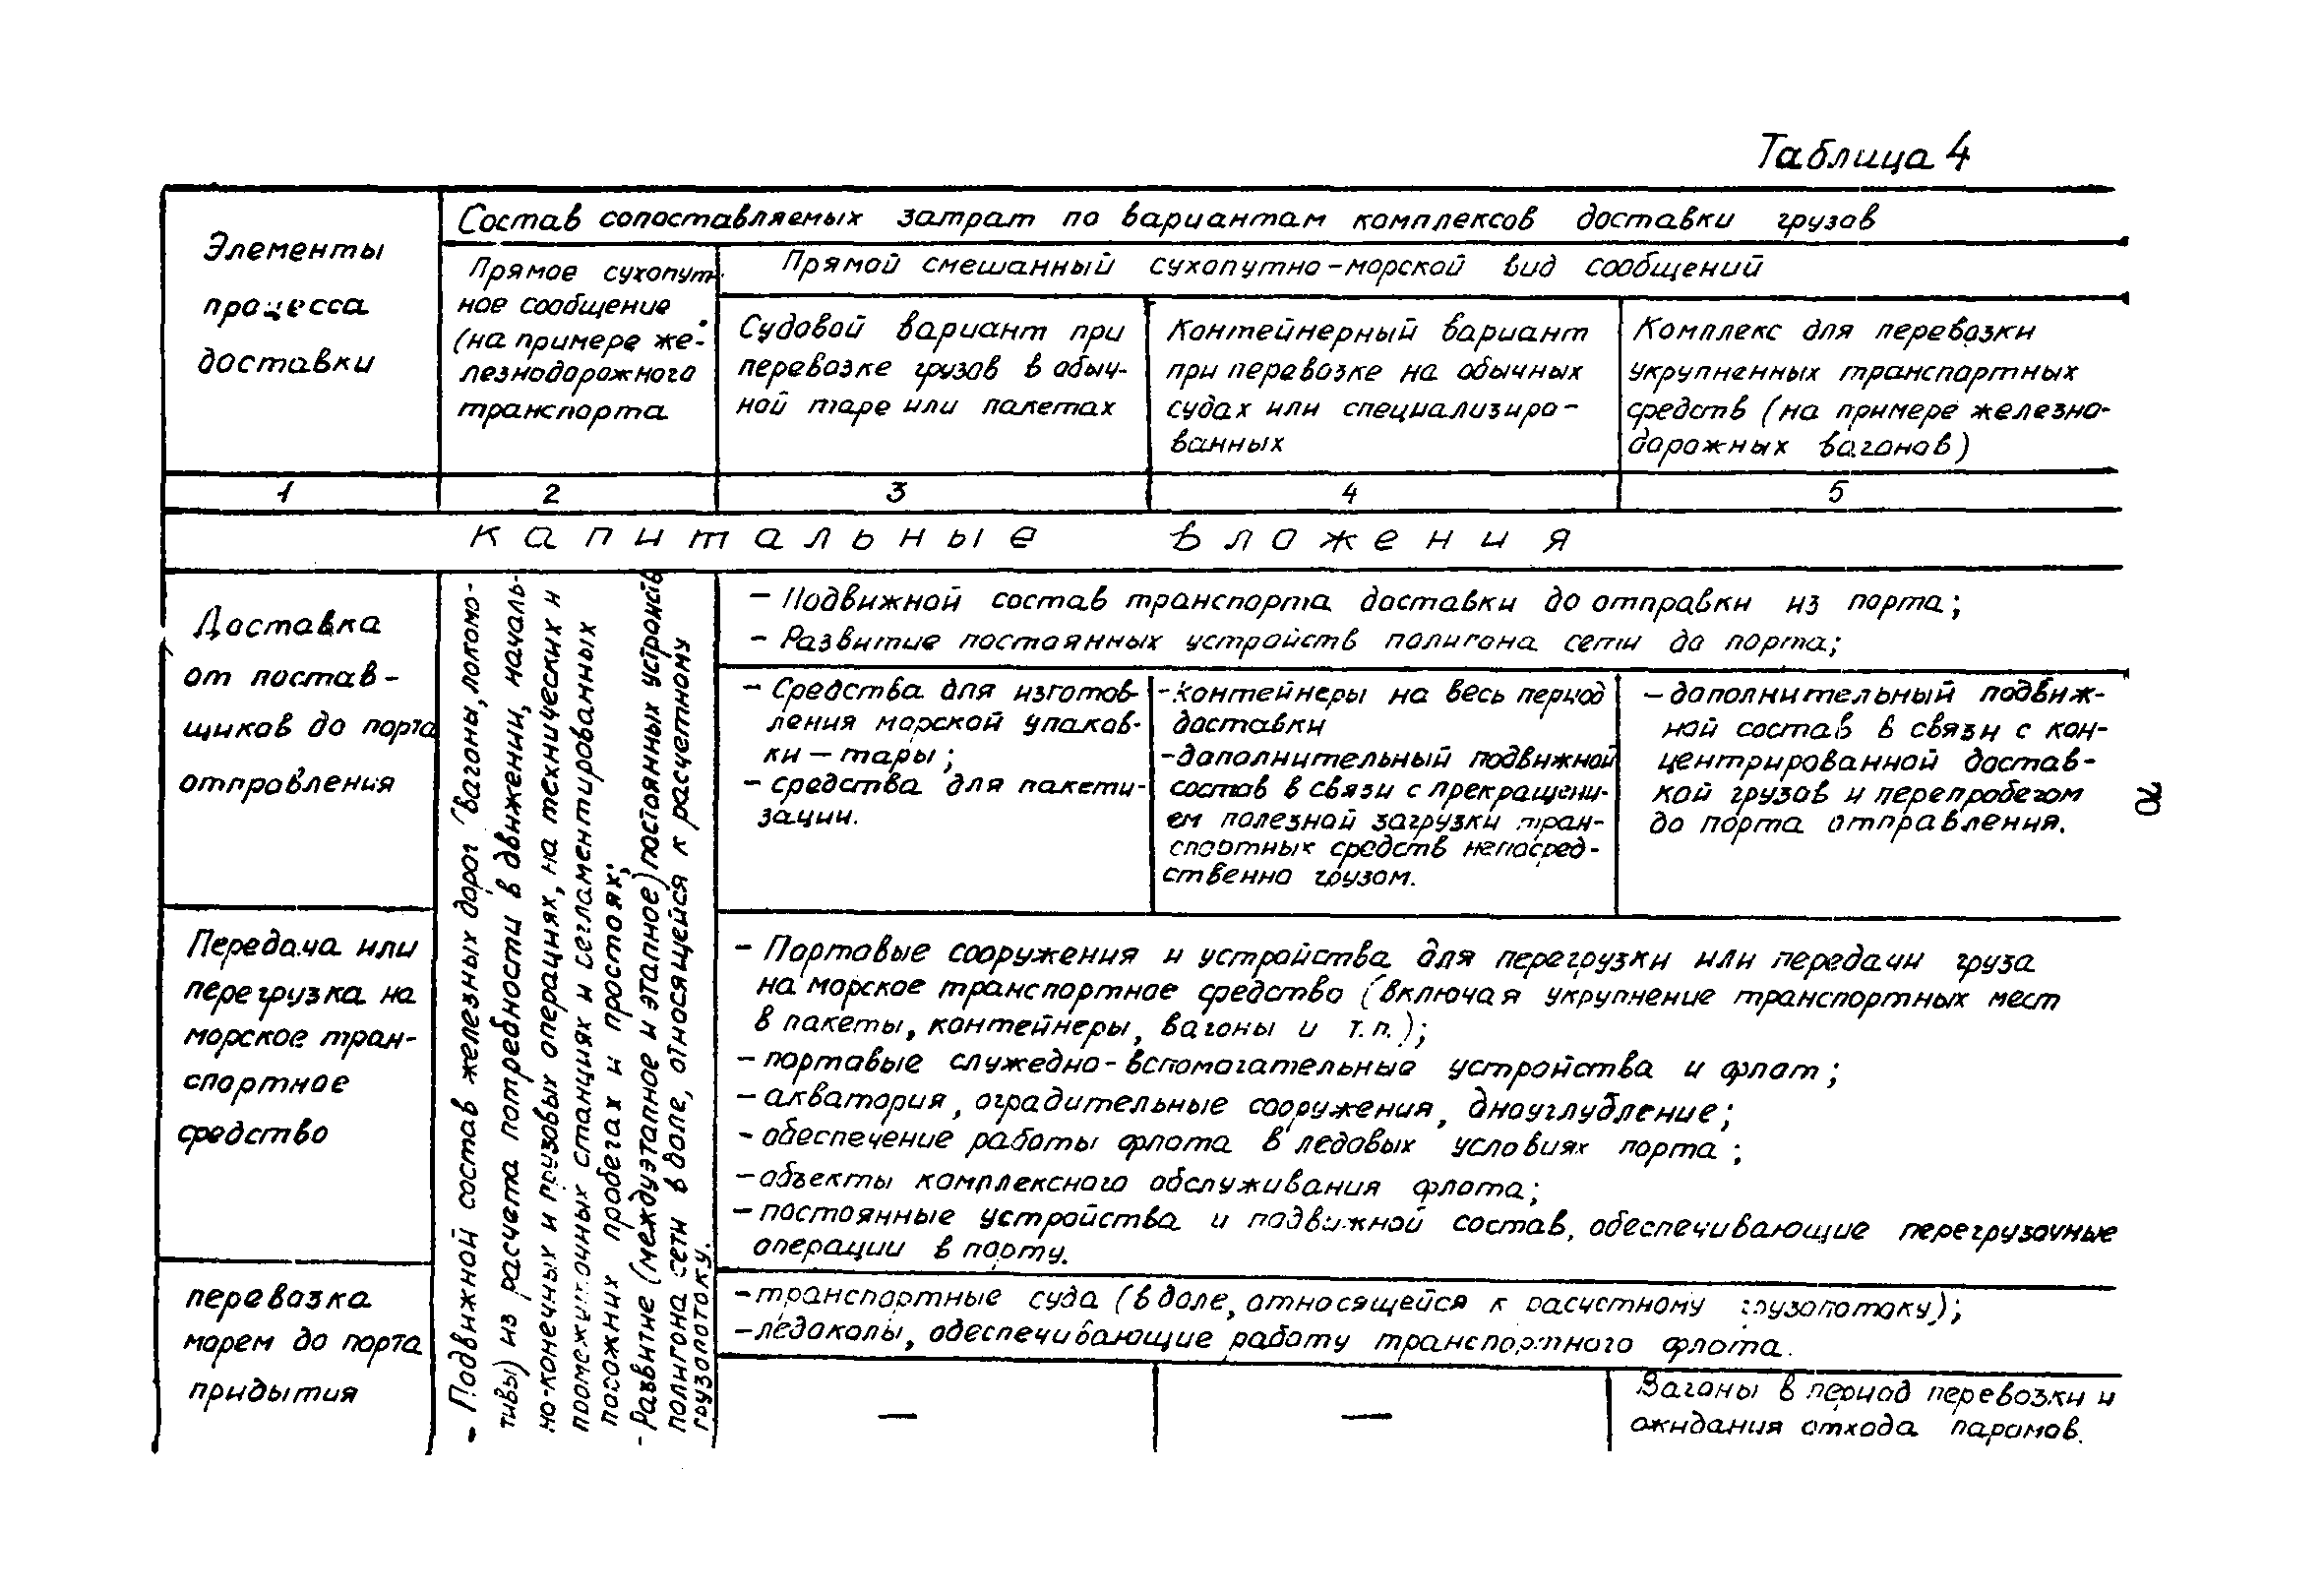 Таблица 4
Элементы
процесса
доставки
Состав сопоставляемых затрат по вариантам комплексов доставки грузов
Прямое сухопут-
ное сообщение
(на примере же-
лезнодорожного
транспорта
Прямой смешанный сухопутно-морской вид сообщений
Судовой вариант при
перевозке грузов в обыч-
ной таре или пакетах
Контейнерный вариант
при перевозке на обычных
судах или специализиро-
ванных
Комплекс для перевозки
укрупненных транспортных
средств (на примере железно-
дорожных вагонов)
1 2 3 4 5
Капитальные вложения
Доставка
от постав-
щиков до порта
отправления
- Подвижной состав железных дорог (вагоны, локомо-
тивы) из расчета потребности в движении, началь-
но-конечных и грузовых операциях, на технических и
промежуточных станциях и регламентированных
порожних пробегах и простоях;
- Развитие (междуэтапное и этапное) постоянных устройств
полигона сети в доле, относящейся к расчетному
грузопотоку.
- Подвижной состав транспорта доставки до отправки из порта;
- Развитие постоянных устройств полигона сети до порта;
- Средства для изготов-
ления морской упаков-
ки - тары;
- средства для пакети-
зации.
- контейнеры на весь период
доставки
- дополнительный подвижной
состав в связи с прекращени-
ем полезной загрузки тран-
спортных средств непосред-
ственно грузом.
- дополнительный подвиж-
ной состав в связи с кон-
центрированной достав-
кой грузов и перепробегом
до порта отправления.
70
Передача или
перегрузка на
морское тран-
спортное
средство
- Портовые сооружения и устройства для перегрузки или передачи груза
на морское транспортное средство (включая укрупнение транспортных мест
в пакеты, контейнеры, вагоны и т.п.);
- портовые служебно-вспомогательные устройства и флот;
- акватория, оградительные сооружения, дноуглубление;
- обеспечение работы флота в ледовых условиях порта;
- объекты комплексного обслуживания флота;
- постоянные устройства и подвижной состав, обеспечивающие перегрузочные
операции в порту.
перевозка
морем до порта
прибытия
- транспортные суда (в доле, относящейся к расчетному грузопотоку);
- ледоколы, обеспечивающие работу транспортного флота.
— —
Вагоны в период перевозки и
ожидания отхода паромов.